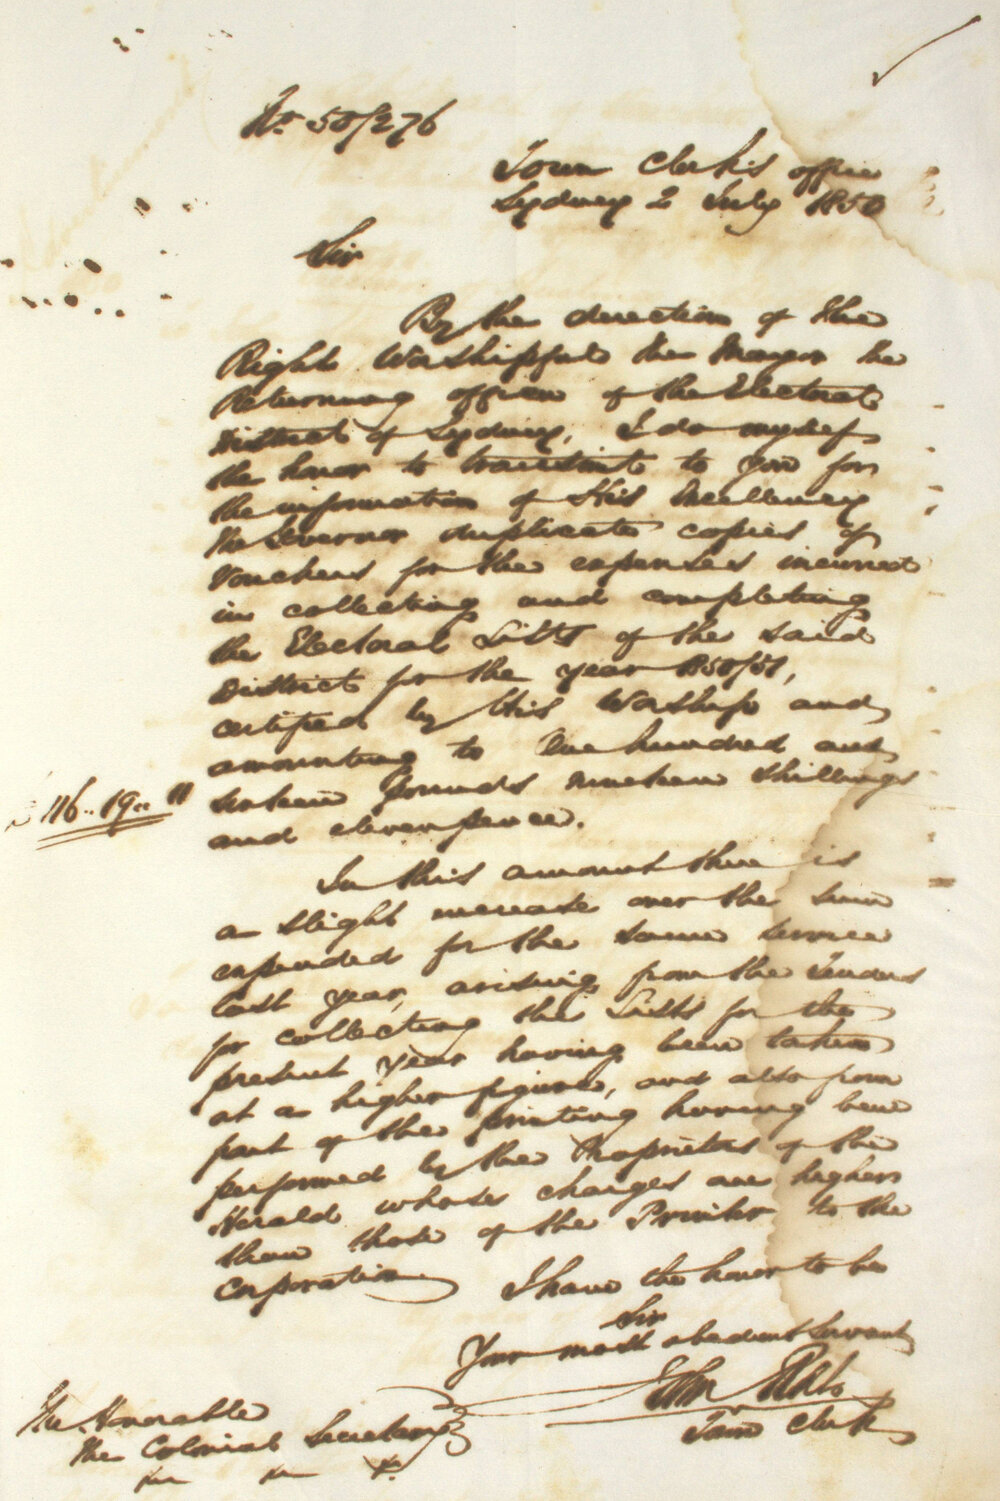 No 50/276
Town Clerk's office
Sydney 2 July 1850
Sir
By the direction of the
Right Worshipful the Mayor the
Returning officer of the Electoral
District of Sydney, I do myself
the honor to transmit to you for
the information of His Excellency
the Governor duplicate copies of
Vouchers for the expenses incurred
in collecting and completing
the Electoral Lists of the said
District for the year 1850/51,
certified by His Worship and
amounting to One hundred and
sixteen pounds nineteen shillings
£116..19..11
and eleven pence.
In this amount there is
a slight increase over the sum
expended for the same service
last year, arising from the Tenders
for collecting the Lists for the
present year having been taken
at a higher figure, and also from
part of the printing having been
performed by the Proprietors of the
Herald whose charges are higher
than those of the Printer to the
Corporation
I have the honor to be
Sir
Your most obedient Servant
Town Clerk
The Honorable
The Colonial Secretary